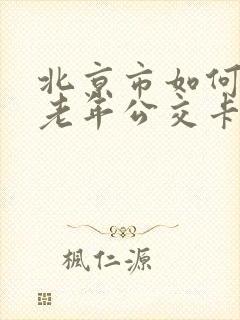 北京市如何
老年公交卡
楓仁源